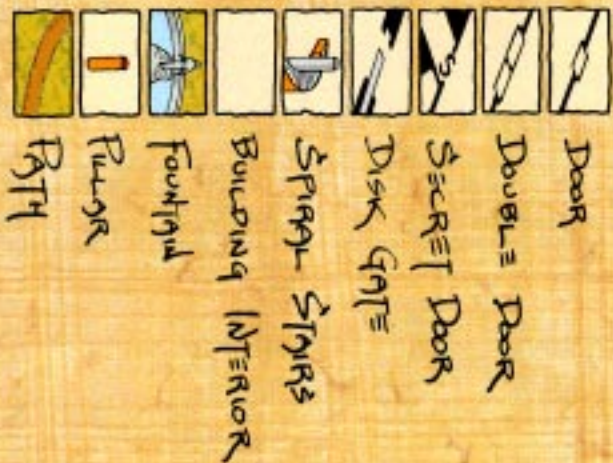 Door
Double Door
Secret Door
S
Disk Gate
Spiral Stairs
Building Interior
Fountain
Pillar
Path